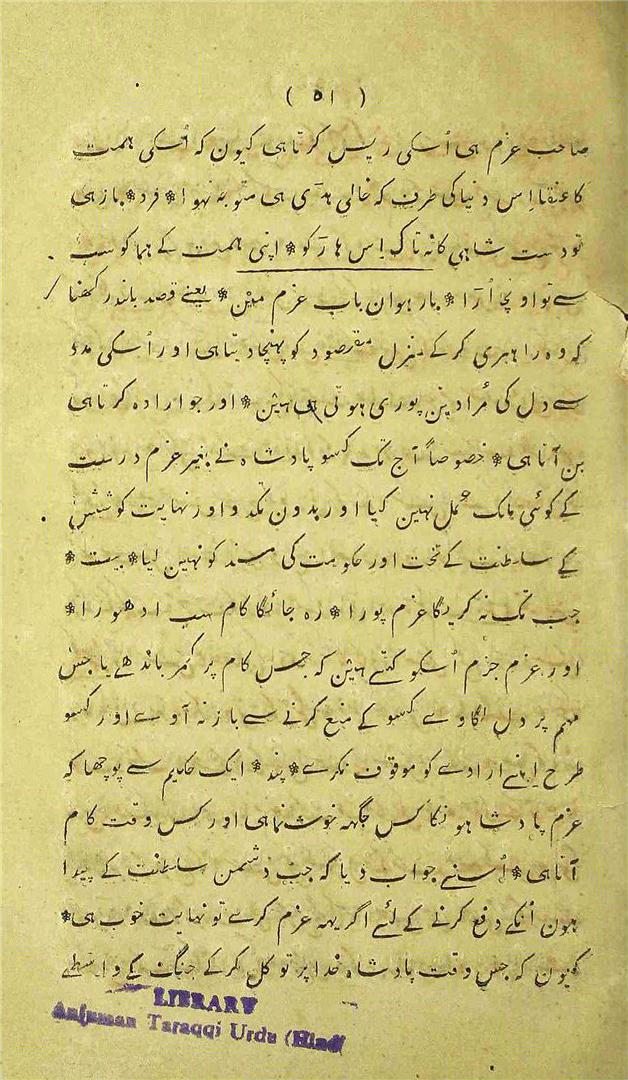 ( ٥١ )
صاحب عزم ہی اُسکی ریس کرتا ہی کیون کہ اُسکی ہمت
کا عنقا اِس دنیا کی طرف کہ خالی ہڈی ہی متوجہ نہوا * فرد * باز ہی
تو دست شاہی کا نہ تاک اِس ہاڑ کو * اپنی ہمت کے ہما کو سب
سے تو اونچا اُڑا * بارہوان باب عزم مین * یعنے قصد بلند رکھنا
کہ وہ راہبری کر کے منزل مقصود کو پہنچا دیتا ہی اور اُسکی مدد
سے دل کی مُرادین پوری ہوتی ہین * اور جو ارادہ کرتا ہی
بن آتا ہی * خصوصاً آج تک کسو پادشاہ نے بغیر عزم درست
کے کوئی ملک عمل نہین کیا اور بدون تگ و دو اور نہایت کوشش
کے سلطنت کے تخت اور حکومت کی مسند کو نہین لیا * بیت *
جب تک نہ کریگا عزم پورا * رہ جائگا کام سب ادھورا *
اور عزم جزم اُسکو کہتے ہین کہ جس کام پر کمر باندھے یا جس
مہم پر دل لگاوے کسو کے منع کرنے سے باز نہ آوے اور کسو
طرح اپنے ارادے کو موقوف نکرے * پند * ایک حکیم سے پوچھا کہ
عزم پادشاہونکا کس جگہہ خوشنما ہی اور کس وقت کام
آتا ہی * اُسنے جواب دیا کہ جب دشمن سلطنت کے پیدا
ہون اُنکے دفع کرنے کے لئے اگر یہہ عزم کرے تو نہایت خوب ہی *
کیون کہ جس وقت پادشاہ خدا پر توکل کر کے جنگ کے واسطے
LIBRARY
Anjuman Taraqqi Urdu (Hind)